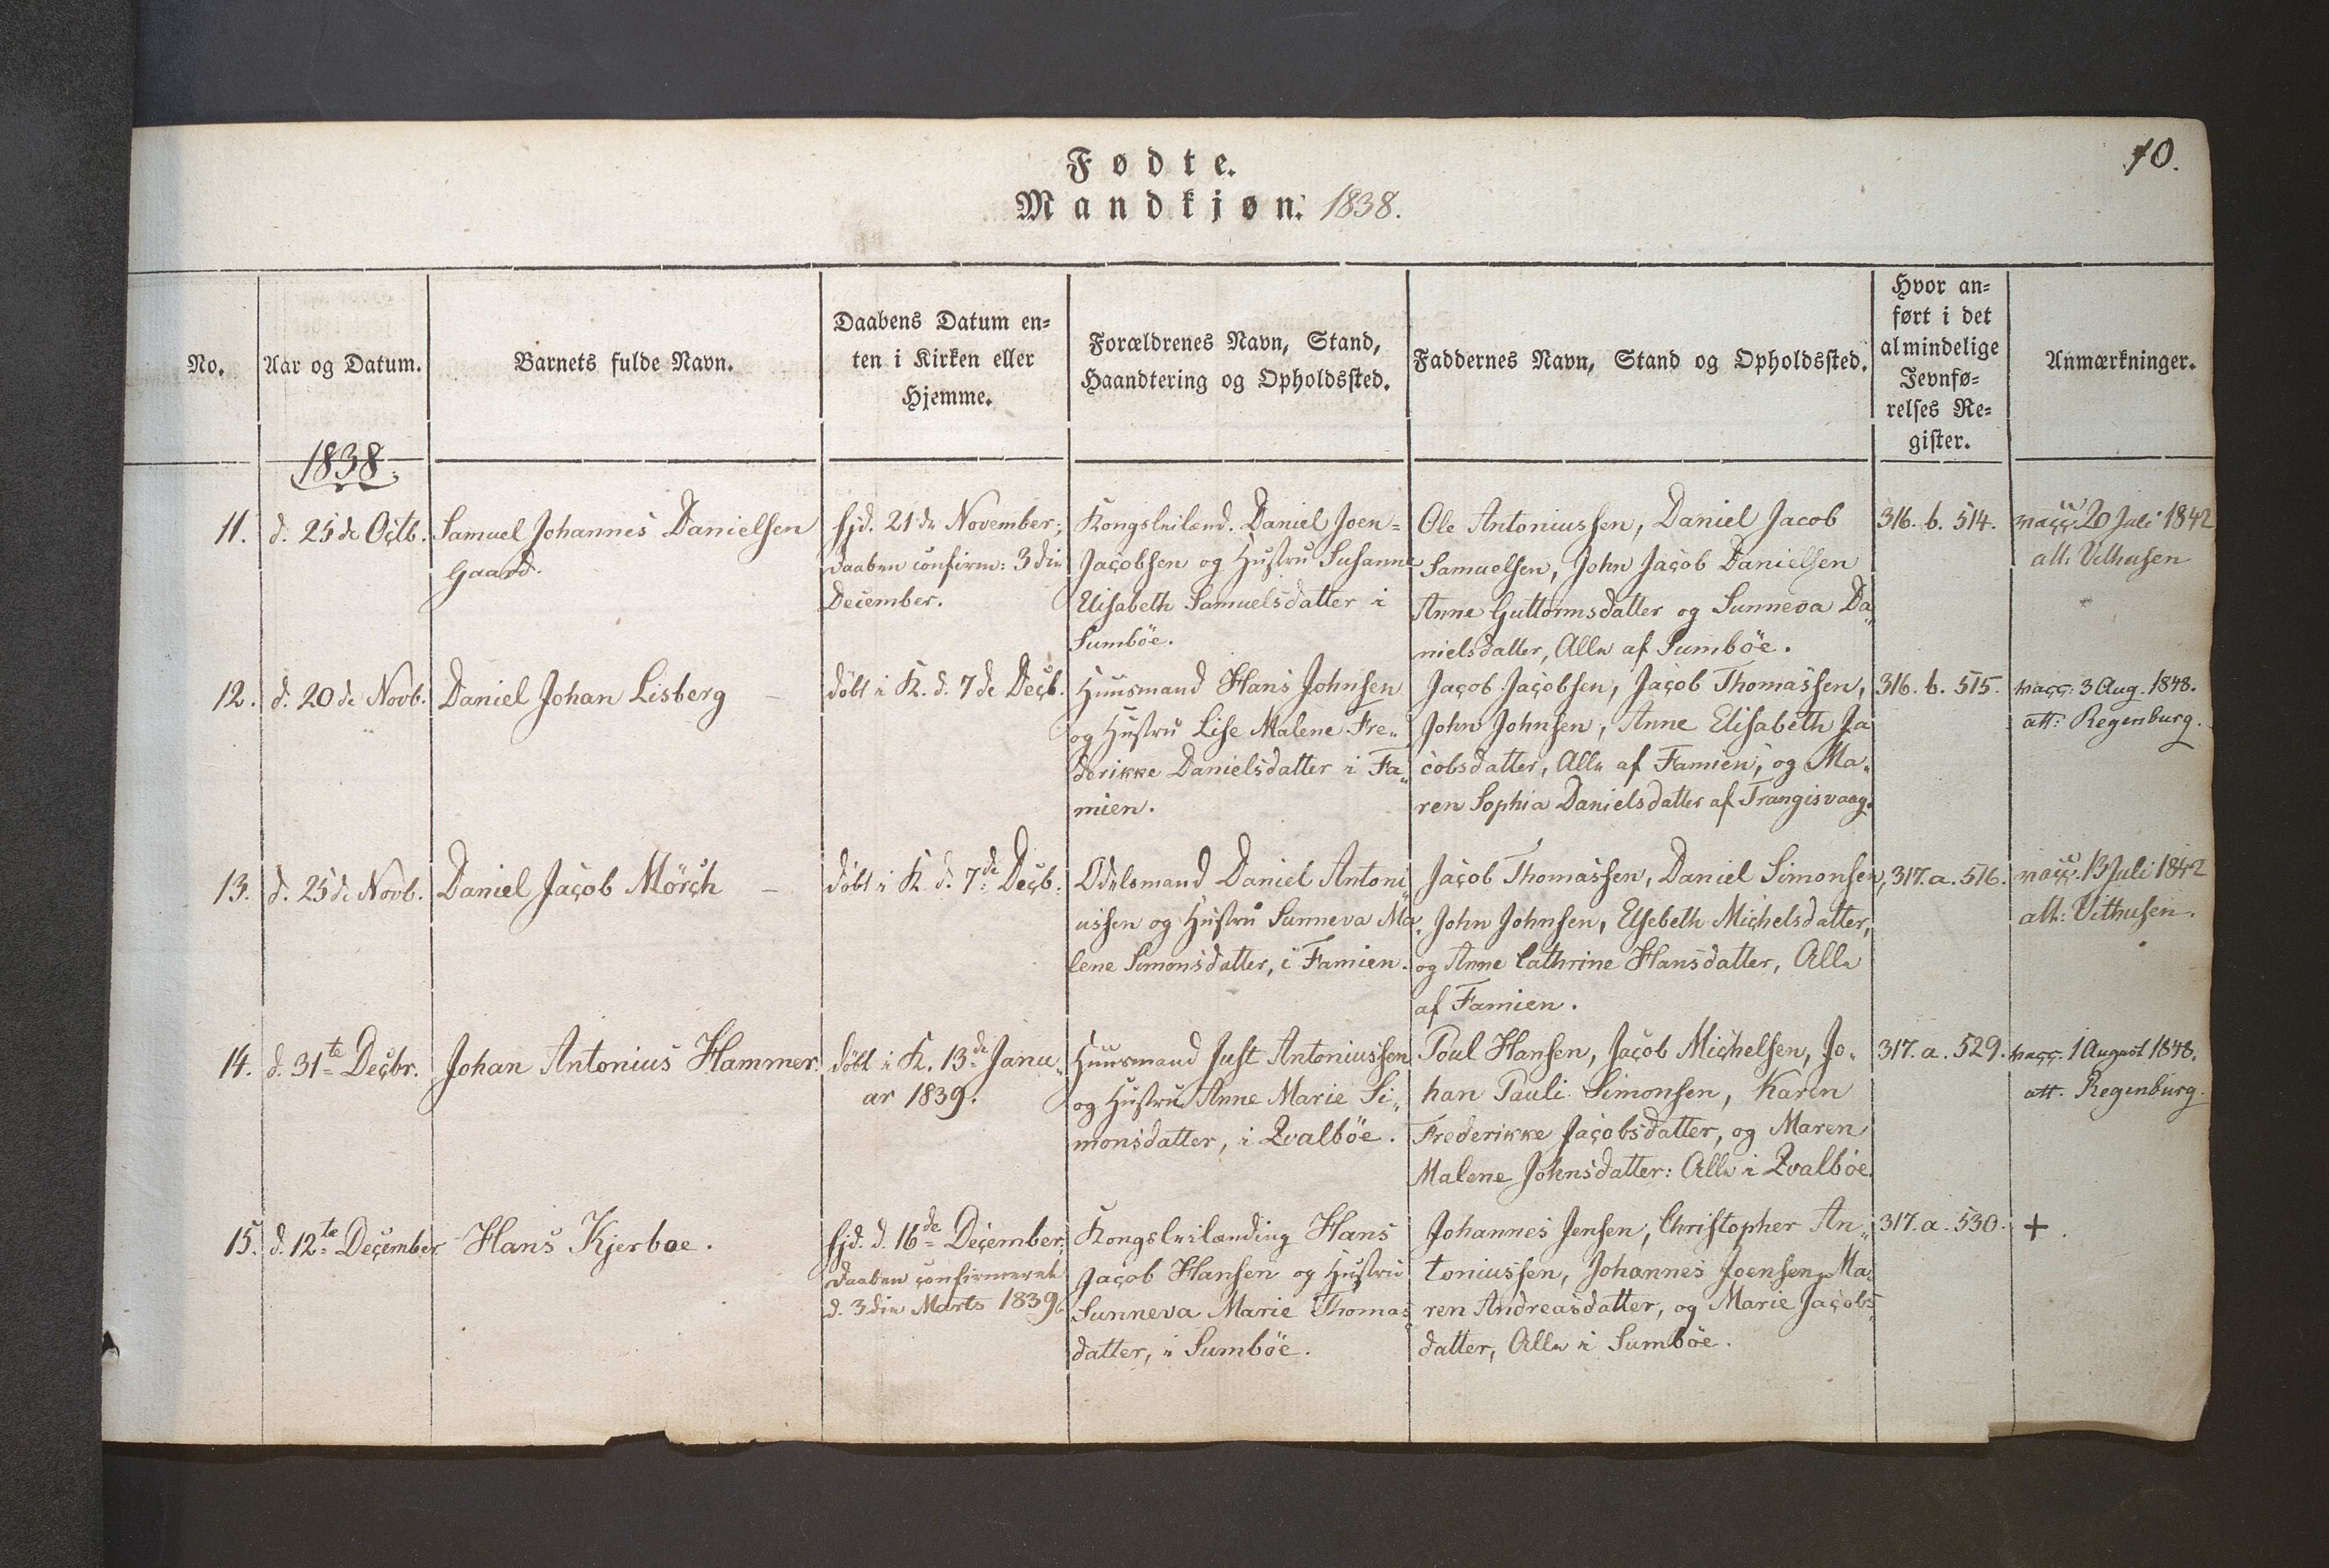 10.
Fødte.
Mandkjøn. 1838.
No.
Aar og Datum.
Barnets fulde Navn.
Daabens Datum en-
ten i Kirken eller
Hjemme.
Forældrenes Navn, Stand,
Haandtering og Opholdssted.
Faddernes Navn, Stand og Opholdssted.
Hvor an-
ført i det
almindelige
Jevnfø-
relses Re-
gister.
Anmærkninger.
1838.
11.
d. 25de Octb.
Samuel Johannes Danielsen
Gaard.
hjd. 21de November;
Daaben confirm: 3die
December.
Kongsleilænd. Daniel Joen-
Jacobsen og Hustru Susanne
Elisabeth Samuelsdatter i
Sumböe.
Ole Antoniussen, Daniel Jacob
Samuelsen, John Jacob Danielsen
Anne Guttormsdatter og Sunneva Da-
nielsdatter, Alle af Sumböe.
316. b. 514.
vacc. 20 Juli 1842
att. Velhusen
12.
d. 20de Novb.
Daniel Johan Lisberg
döbt i K. d. 7de Decb.
Huusmand Hans Johnsen
og Hustru Lise Malene Fre-
derikke Danielsdatter i Fa-
mien.
Jacob Jacobsen, Jacob Thomassen,
John Johnsen, Anne Elisabeth Ja
cobsdatter, Alle af Famien, og Ma-
ren Sophia Danielsdatter af Trangisvaag.
316. b. 515.
vacc. 3 Aug. 1848.
att: Regenburg.
13.
d. 25de Novb.
Daniel Jacob Mörch
döbt i K. d. 7de Decb.
Odelsmand Daniel Antoni
ussen og Hustru Sunneva Ma-
lene Simonsdatter, i Famien.
Jacob Thomassen, Daniel Simonsen,
John Johnsen, Elsebeth Michelsdatter,
og Anne Cathrine Hansdatter, Alle
af Famien.
317. a. 516.
vacc. 13 Juli 1842
att: Velhusen.
14.
d. 31te Decbr.
Johan Antonius Hammer.
döbt i K. 13de Janu-
ar 1839.
Huusmand Just Antoniussen
og Hustru Anne Marie Si-
monsdatter, i Qvalböe.
Poul Hansen, Jacob Michelsen, Jo-
han Pauli Simonsen, Karen
Frederikke Jacobsdatter, og Maren
Malene Johnsdatter: Alle i Qvalböe.
317. a. 529.
vacc. 1 August 1848.
att. Regenburg.
15.
d. 12te December
Hans Kjerboe.
hjd. d. 16de December;
Daaben confirmeret
d. 3die Marts 1839.
Kongsleilænding Hans
Jacob Hansen og Hustru
Sunneva Marie Thomas
datter, i Sumböe.
Johannes Jensen, Christopher An-
toniussen, Johannes Joensen, Ma-
ren Andreasdatter, og Marie Jacobs
datter, Alle i Sumböe.
317. a. 530.
+.